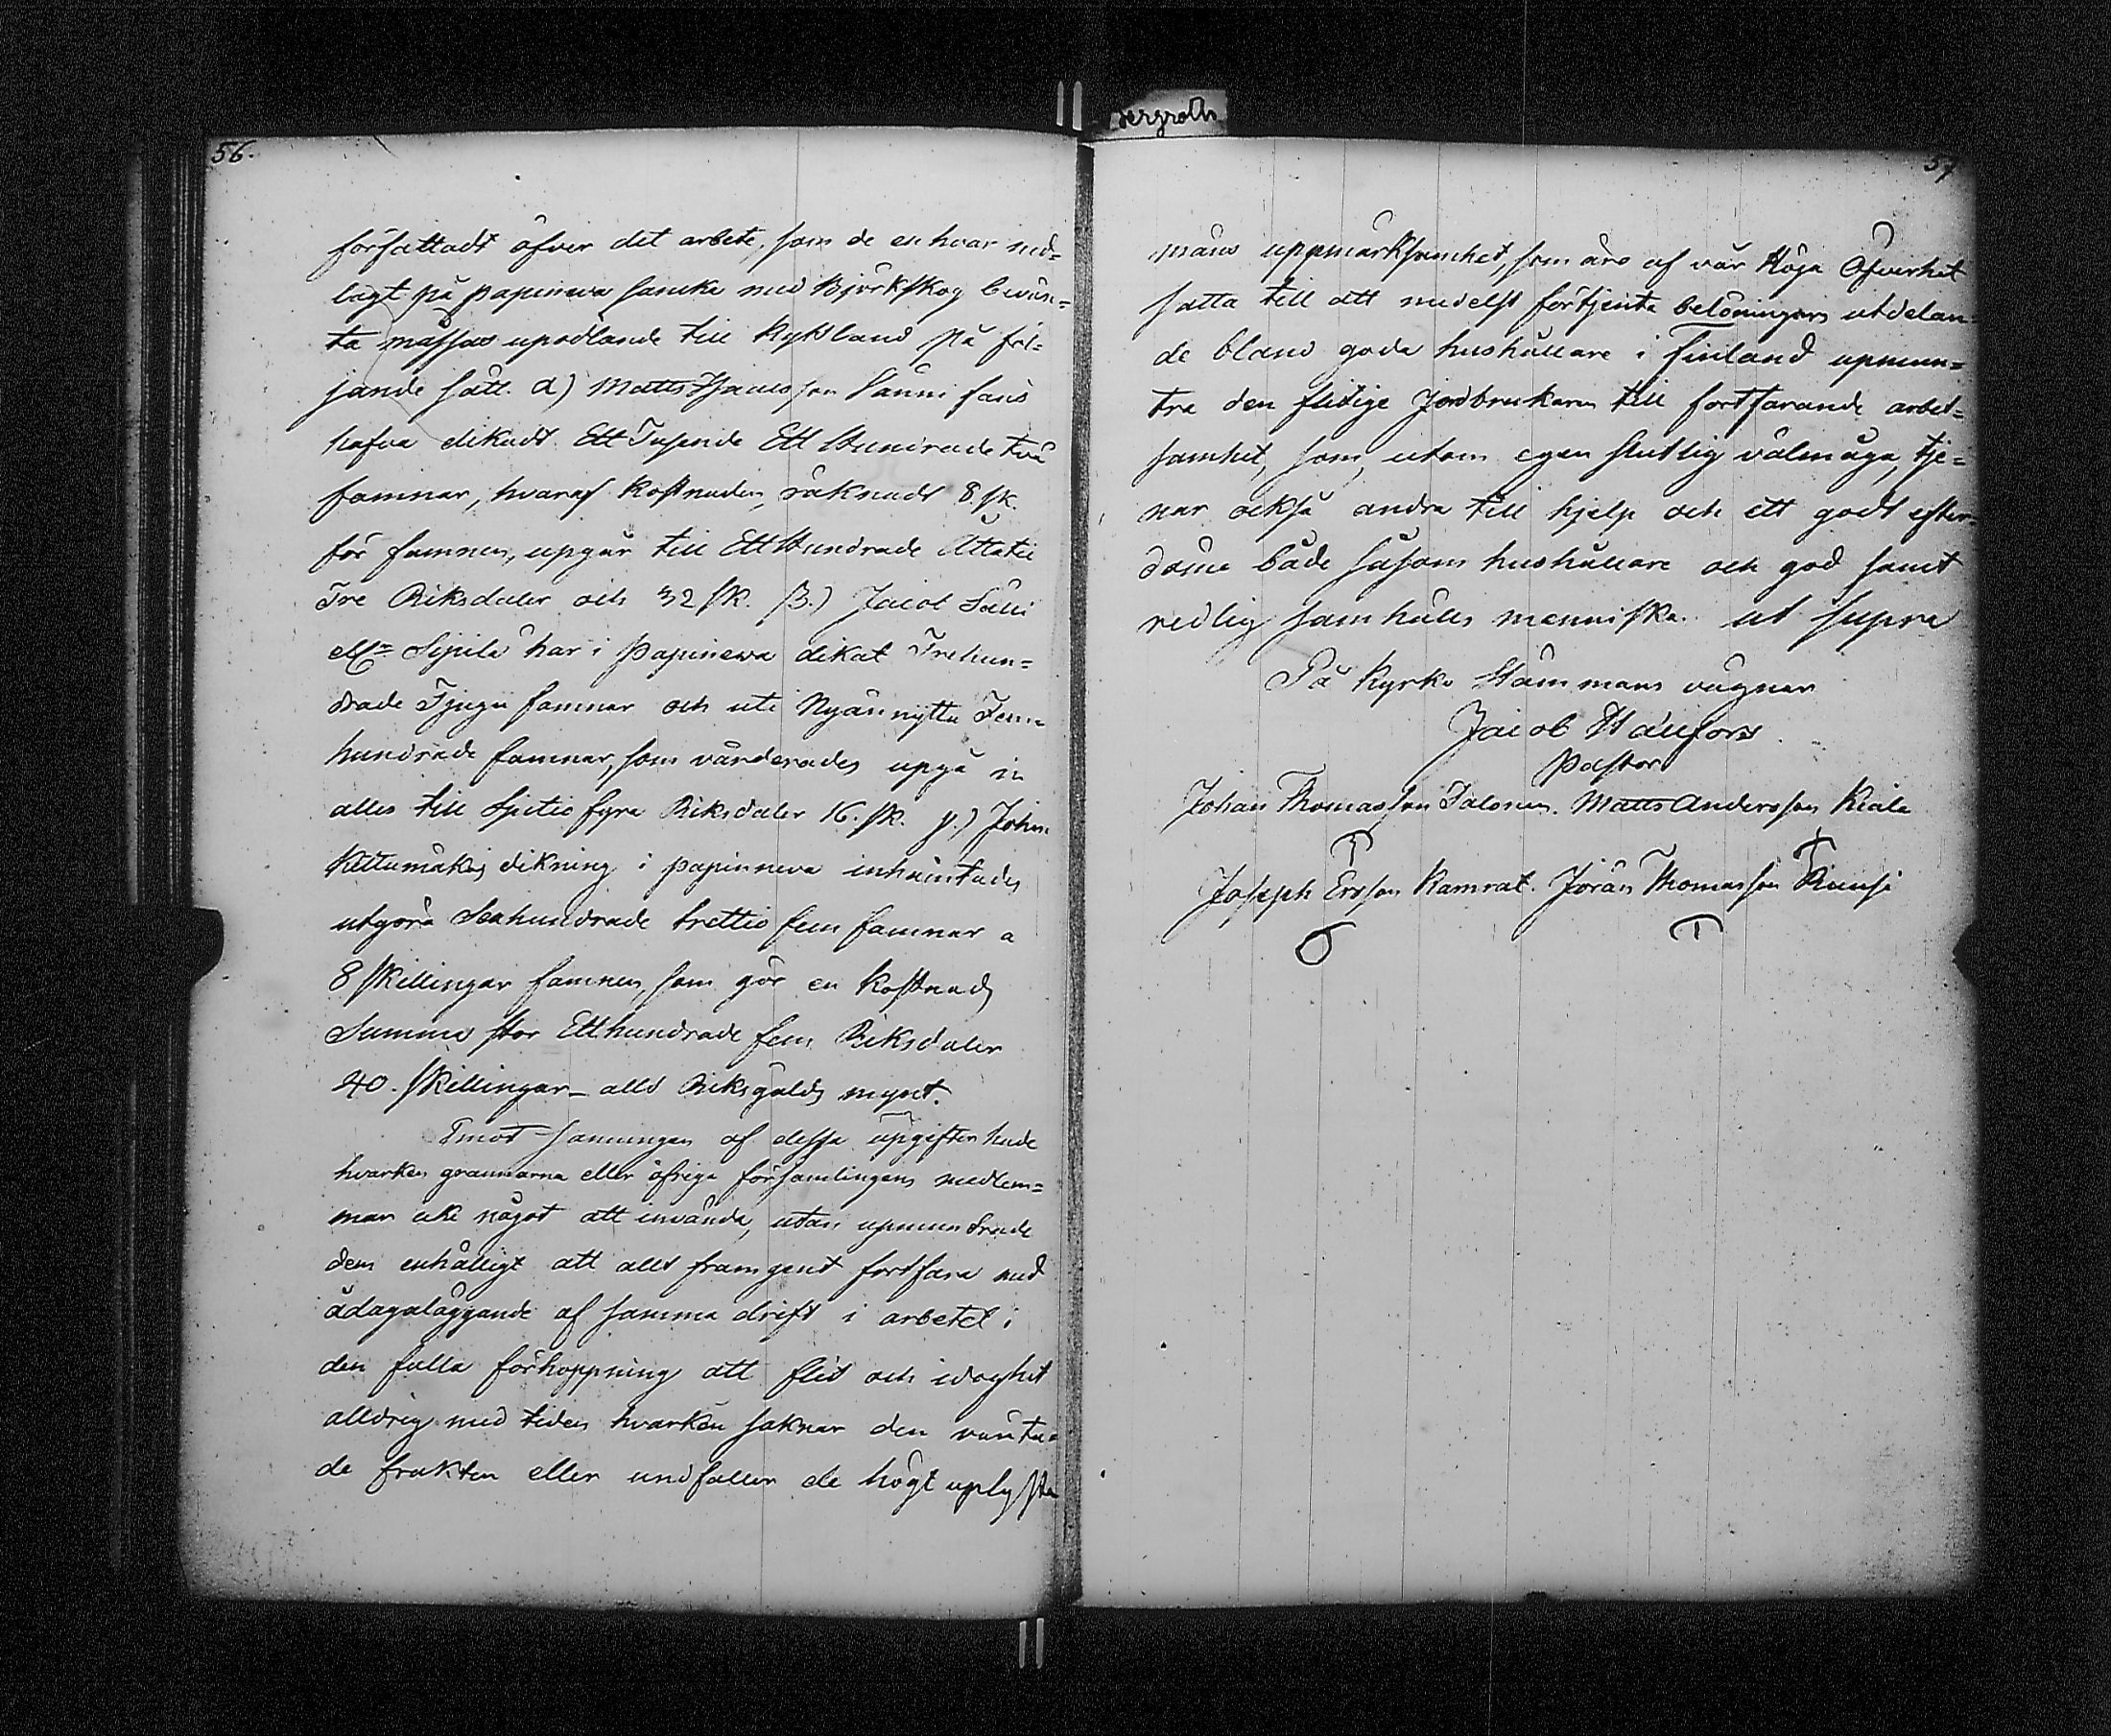 56.
författadt öfver det arbete, som de en hvar ned=
lagt på papinewa samt med Björkskog bevän=
ta måssas upodlande till Kyttland på föl=
jande sätt. α) Matts Isacsson Sauni fans
hafva dikadt Ett Tusende Ett Hundrade två
famnar, hvaraf kostnaden, räknadt 8 sk.
för famnen, upgår till Ett Hundrade Åttatie
Tre Riksdaler och 32 sk. β.) Jacob
Sipilä har i Papinewa dikat Trehun=
drade Tjugu famnar och uti Nyännytty Fem=
hundrade famnar, som värderades upgå in
alles till fyra Riksdaler 16. sk. γ.) Johan
Kettumäkis dikning i papinneva inhämtades
utgöra Sexhundrade trettio fem famnar a
8 skillingar famnen, som gör en kostnads
Summa stor Ett hundrade fem Riksdaler
40. skillingar - allt Riksgälds mynt.
Emot sanningen af dessa upgifter hade
hvarken grannarna eller öfriga församlingens medlem=
mar icke något att invända, utan upmuntrade
dem enhälligt att allt framgent fortfara med
ådagaläggande af samma drift i arbetet i
den fulla förhoppning att flit och idoghet
alldrig med tiden hvarken saknar den vänta=
de frukten eller undfaller de högt uplysta
bergroth
57
mäns uppmärksamhet, som äro af vår Höga Öfverhet
satta till att medelst förtjenta belöningars utdelan=
de bland goda hushållare i Finland upmun=
tra den flitige Jordbrukaren till fortfarande arbet=
samhet, som, utom egen slutlig välmåga, tje=
nar också andra till hjelp och ett godt efter=
döme både såsom hushållare och god samt
redlig samhälls menniska. ut supra
På Kyrko Stämmans vägnar
Jacob Hällfors
Pastor
Johan Thomasson Salonen. Matts Andersson Kiala
Joseph Ersson Kamrat. Jöran Thomasson Ruusi